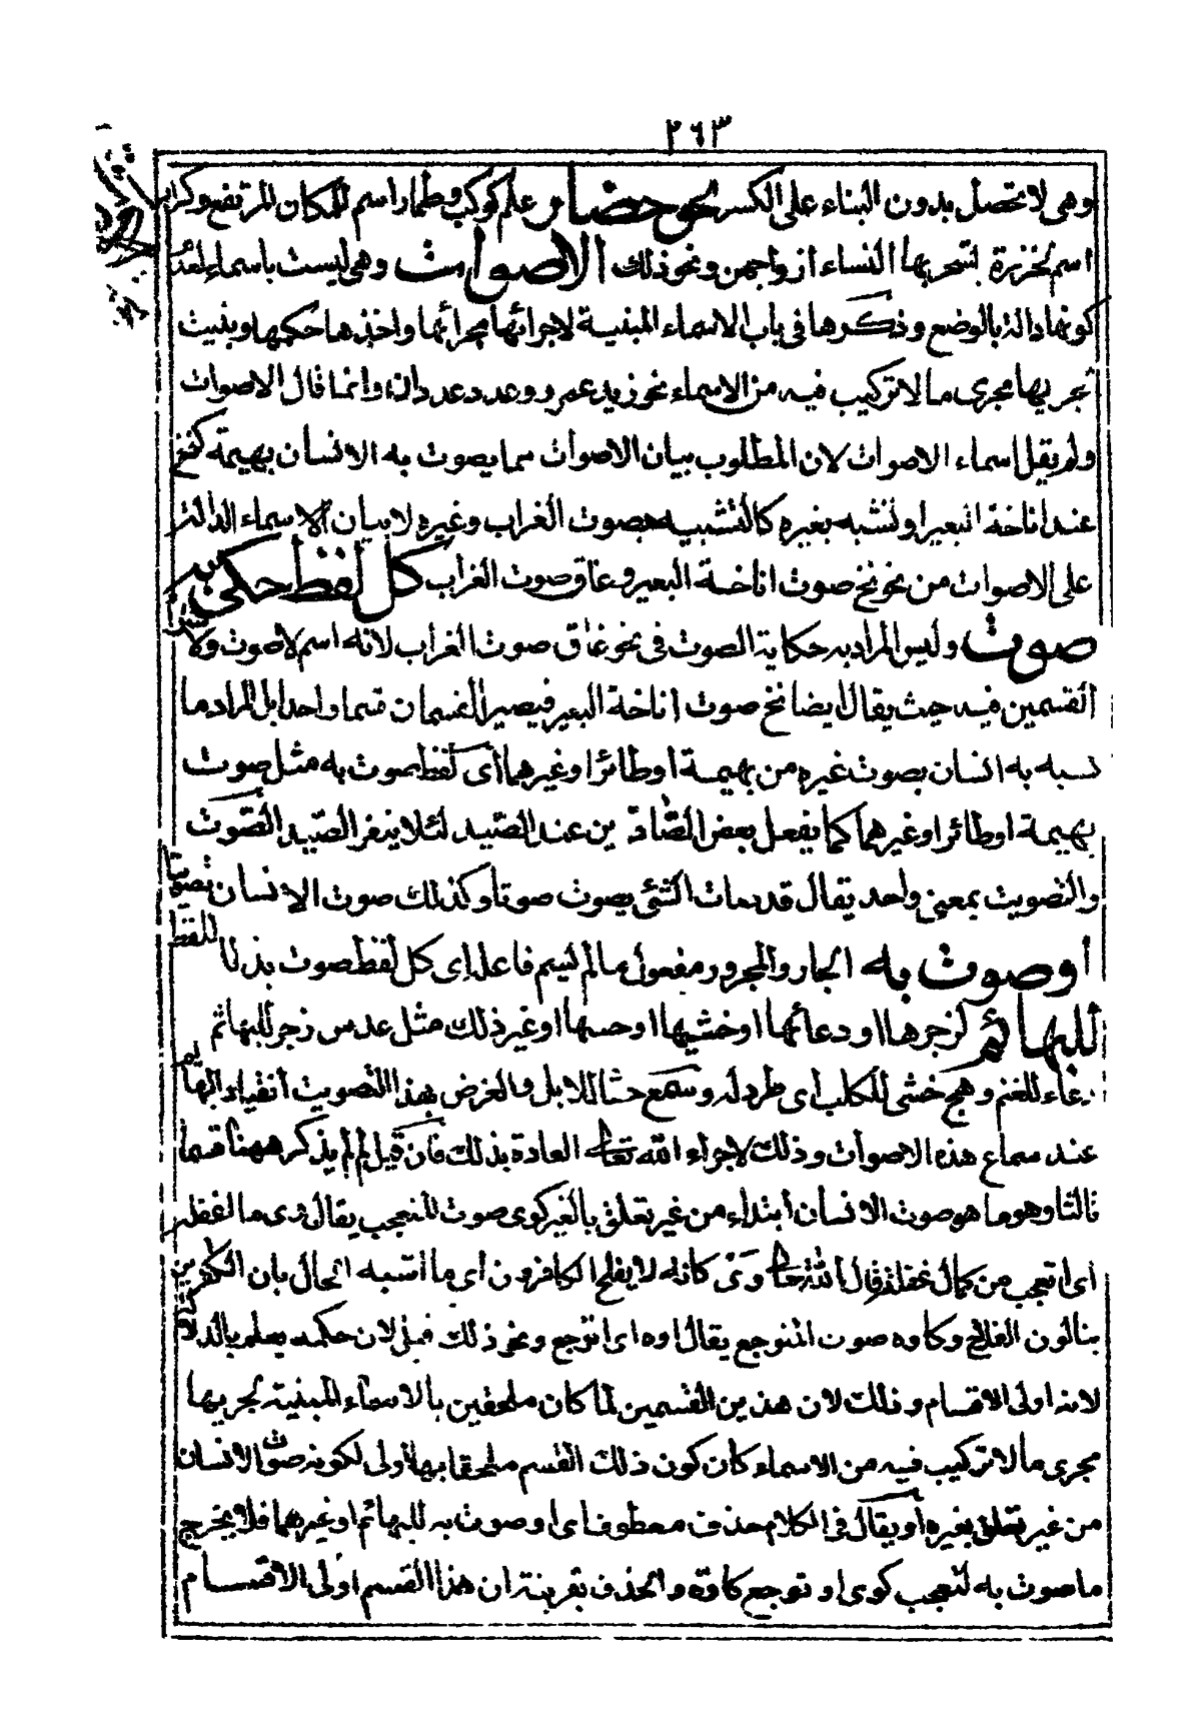 ٢٦٣
وهى لا تحصل بدون البناء على الكسر نحو حضار علم كوكب وطمار اسم للمكان المرتفع وكرار
اسم لخرزة تسحر بها النساء ازواجهن ونحو ذلك الاصوات وهى ليست باسماء لعدم
كونها دالة بالوضع وذكرها فى باب الاسماء المبنية لاجرائها مجرائها واخذها حكمها وبنيت
لجريها مجرى ما لا تركيب فيه من الاسماء نحو زيد عمرو وعدد عددان وانما قال الاصوات
ولم يقل اسماء الاصوات لان المطلوب بيان الاصوات مما يصوت به الانسان بهيمة كنخ
عند اناخة البعير او تشبه بغيره كالتشبيه بصوت الغراب وغيره لا بيان الاسماء الدالة
على الاصوات من نحو نخ صوت اناخة البعير وغاق صوت الغراب كل لفظ حكى به
صوت وليس المراد به حكاية الصوت فى نحو غاق صوت الغراب لانه اسم لاصوت ولا
القسمين فيه حيث يقال ايضا نخ صوت اناخة البعير فيصير القسمان قسما واحدا بل المراد ما
شبه به انسان بصوت غيره من بهيمة او طائر او غيرهما اى لفظ صوت به مثل صوت
بهيمة او طائر او غيرهما كما يفعل بعض الصادين عند الصيد لئلا ينفر الصيد الصوت
والتصويت بمعنى واحد يقال قد مات الشئ يصوت صوتا وكذلك صوت الانسان تصويتا
أو صوت به الجار والمجرور مفعول ما لم يسم فاعله اى كل لفظ صوت بذلك اللفظ
للبهائم لزجرها او دعائها او خشيها او حسها او غير ذلك مثل عدس زجر للبهائم
دعاء للغنم وهج خشى للكلب اى طرد له وسمع حثا للابل والغرض بهذا التصويت انقياد البهايم
عند سماع هذه الاصوات وذلك لاجراء الله تعالى العادة بذلك فان قيل لم لم يذكر ههنا قسما
ثالثا وهو ما هو صوت الانسان ابتداء من غير تعلق بالغير كوى صوت للتعجب يقال وى ما اغفله
اى اتعجب من كمال غفلته قال الله تعالى وى كانه لا يفلح الكافرون اى ما اشبه الحال بان الكافرين
ينالون الفلاح وكاوه صوت المتوجع يقال اوه اى اتوجع ونحو ذلك قيل لان حكمه يعلم بالدلالة
لانه اولى الاقسام وذلك لان هذين القسمين لما كان ملحقين بالاسماء المبنية لجريها
مجرى ما لا تركيب فيه من الاسماء كان كون ذلك القسم ملحقا بها اولى لكونه صوت الانسان
من غير تعلق بغيره أو يقال فى الكلام حذف معطوف اى او صوت به للبهائم او غيرهما فلا يخرج
ما صوت به لتعجب كوى او توجع كاوه والحذف بقرينة ان هذا القسم اولى الاقسام